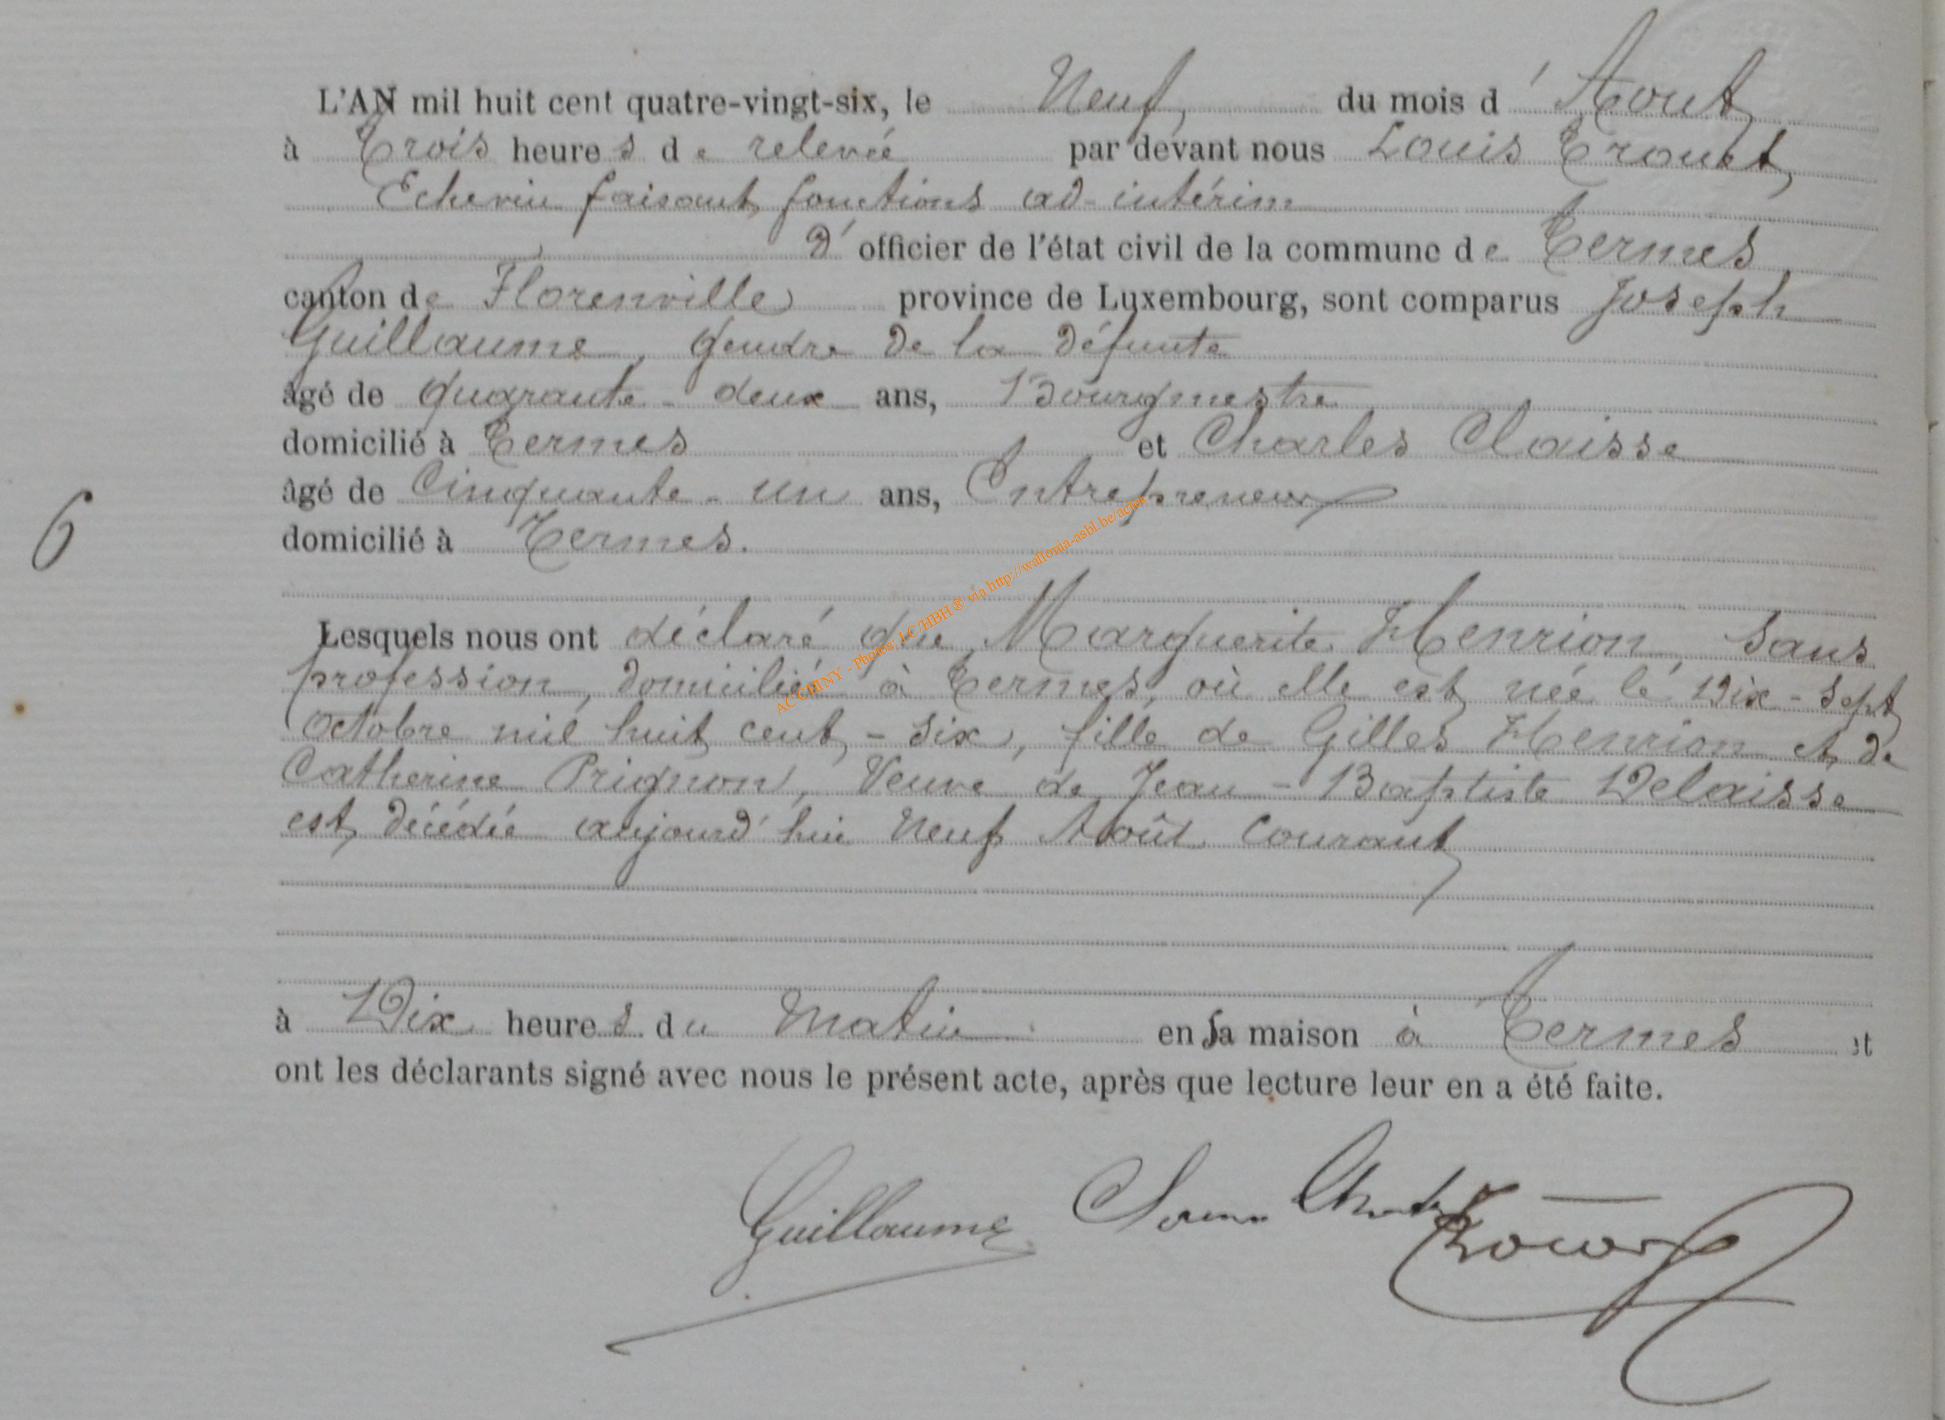 L'AN mil huit cent quatre-vingt-six, le Neuf du mois d'Aout
à Trois heures de relevée par devant nous Louis Trouet,
Echevin faisant fonctions ad-intérim
d'officier de l'état civil de la commune de Termes,
canton de Florenville province de Luxembourg, sont comparus Joseph
Guillaume, Gendre de la défunte
âgé de quarante-deux ans, Bourgmestre
domicilié à Termes et Charles Claisse
âgé de Cinquante-un ans, Entrepreneur
domicilié à Termes.
6
Lesquels nous ont déclaré que Marguerite Henrion, sans
profession, domiciliée à Termes, où elle est née le Dix-sept
Octobre mil huit cent-six, fille de Gilles Henrion et de
Catherine Prignon, Veuve de Jean-Baptiste Delaisse
est décédée aujourd'hui Neuf Août courant
à Dix heures du Matin en sa maison à Termes et
ont les déclarants signé avec nous le présent acte, après que lecture leur en a été faite.
Guillaume
AC CHINY - Photos: J-C HBH ® via http://wallonia-asbl.be/actes